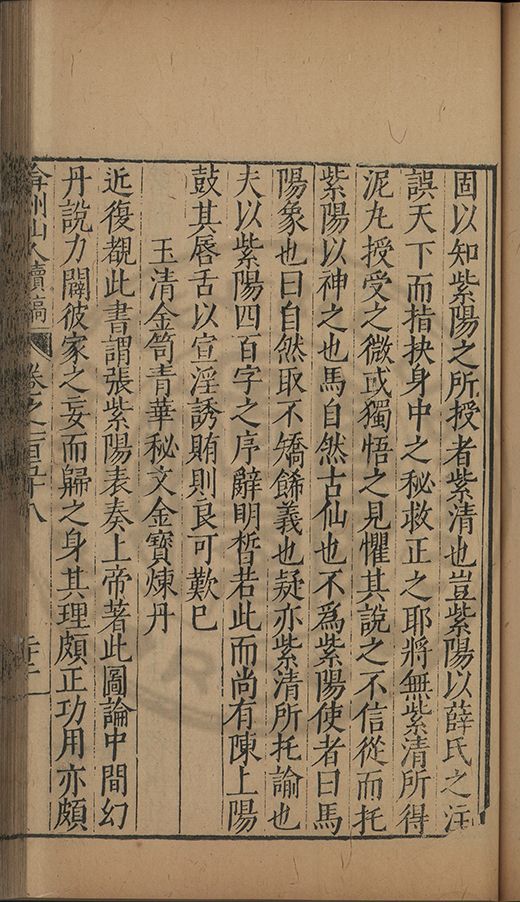 固以知紫陽之所授者紫清也豈紫陽以薛氏之注
誤天下而指抉身中之秘救正之耶將無紫清所得
泥丸授受之微或獨悟之見懼其說之不信從而托
紫陽以神之也馬自然古仙也不爲紫陽使者曰馬
陽象也曰自然取不矯餙義也疑亦紫清所托諭也
夫以紫陽四百字之序辭明晳若此而尚有陳上陽
鼓其唇舌以宣淫誘賄則良可歎已
玉清金笥青華秘文金寶煉丹
近復覩此書謂張紫陽表奏上帝著此圖論中間幻
丹說力闢彼家之妄而歸之身其理頗正功用亦頗
弇州山人續稿 卷之一百五十八